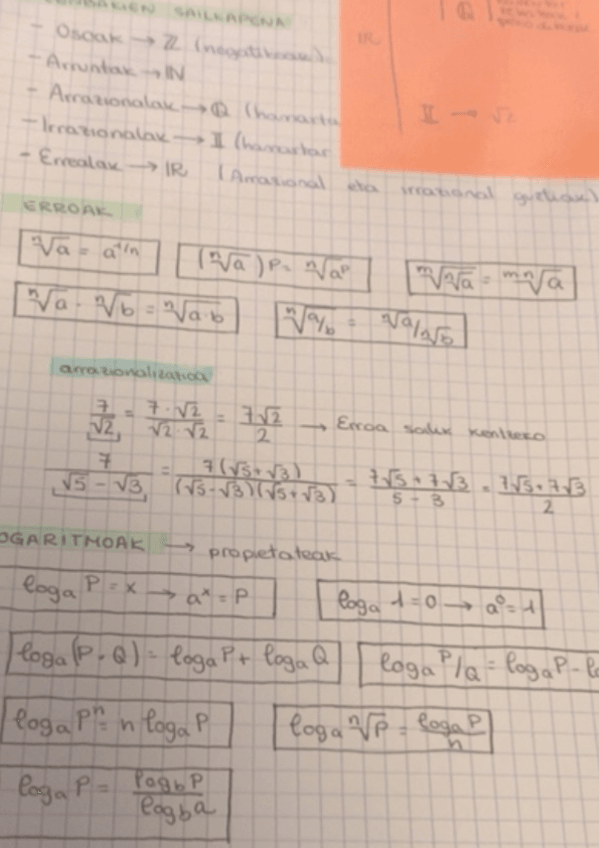 SAILKAPENA
- Osoak → ℤ (negatiboak)
- Arruntak → ℕ
- Arrazionalak → ℚ (hamarta
- Irrazionalak → 𝕀 (hamartar
- Errealak → ℝ (Arrazional eta irrazional guztiak)
ℚ
ℝ
𝕀 → √2
ERROAK
ⁿ√a = a^1/n
(ⁿ√a)^p = ⁿ√a^p
ᵐ√ⁿ√a = ᵐ·ⁿ√a
ⁿ√a · ⁿ√b = ⁿ√a·b
ⁿ√a/b = ⁿ√a/ⁿ√b
arrazionalizatioa
7/√2 = 7·√2/√2·√2 = 7√2/2 → Erroa kentzeko
7/√5-√3 = 7(√5+√3)/(√5-√3)(√5+√3) = 7√5+7√3/5-3 = 7√5+7√3/2
OGARITMOAK → propietateak
log_a P = x → a^x = P
log_a 1 = 0 → a^0 = 1
log_a (P·Q) = log_a P + log_a Q
log_a P/Q = log_a P - lo
log_a P^n = n log_a P
log_a ⁿ√P = log_a P/n
log_a P = log_b P/log_b a